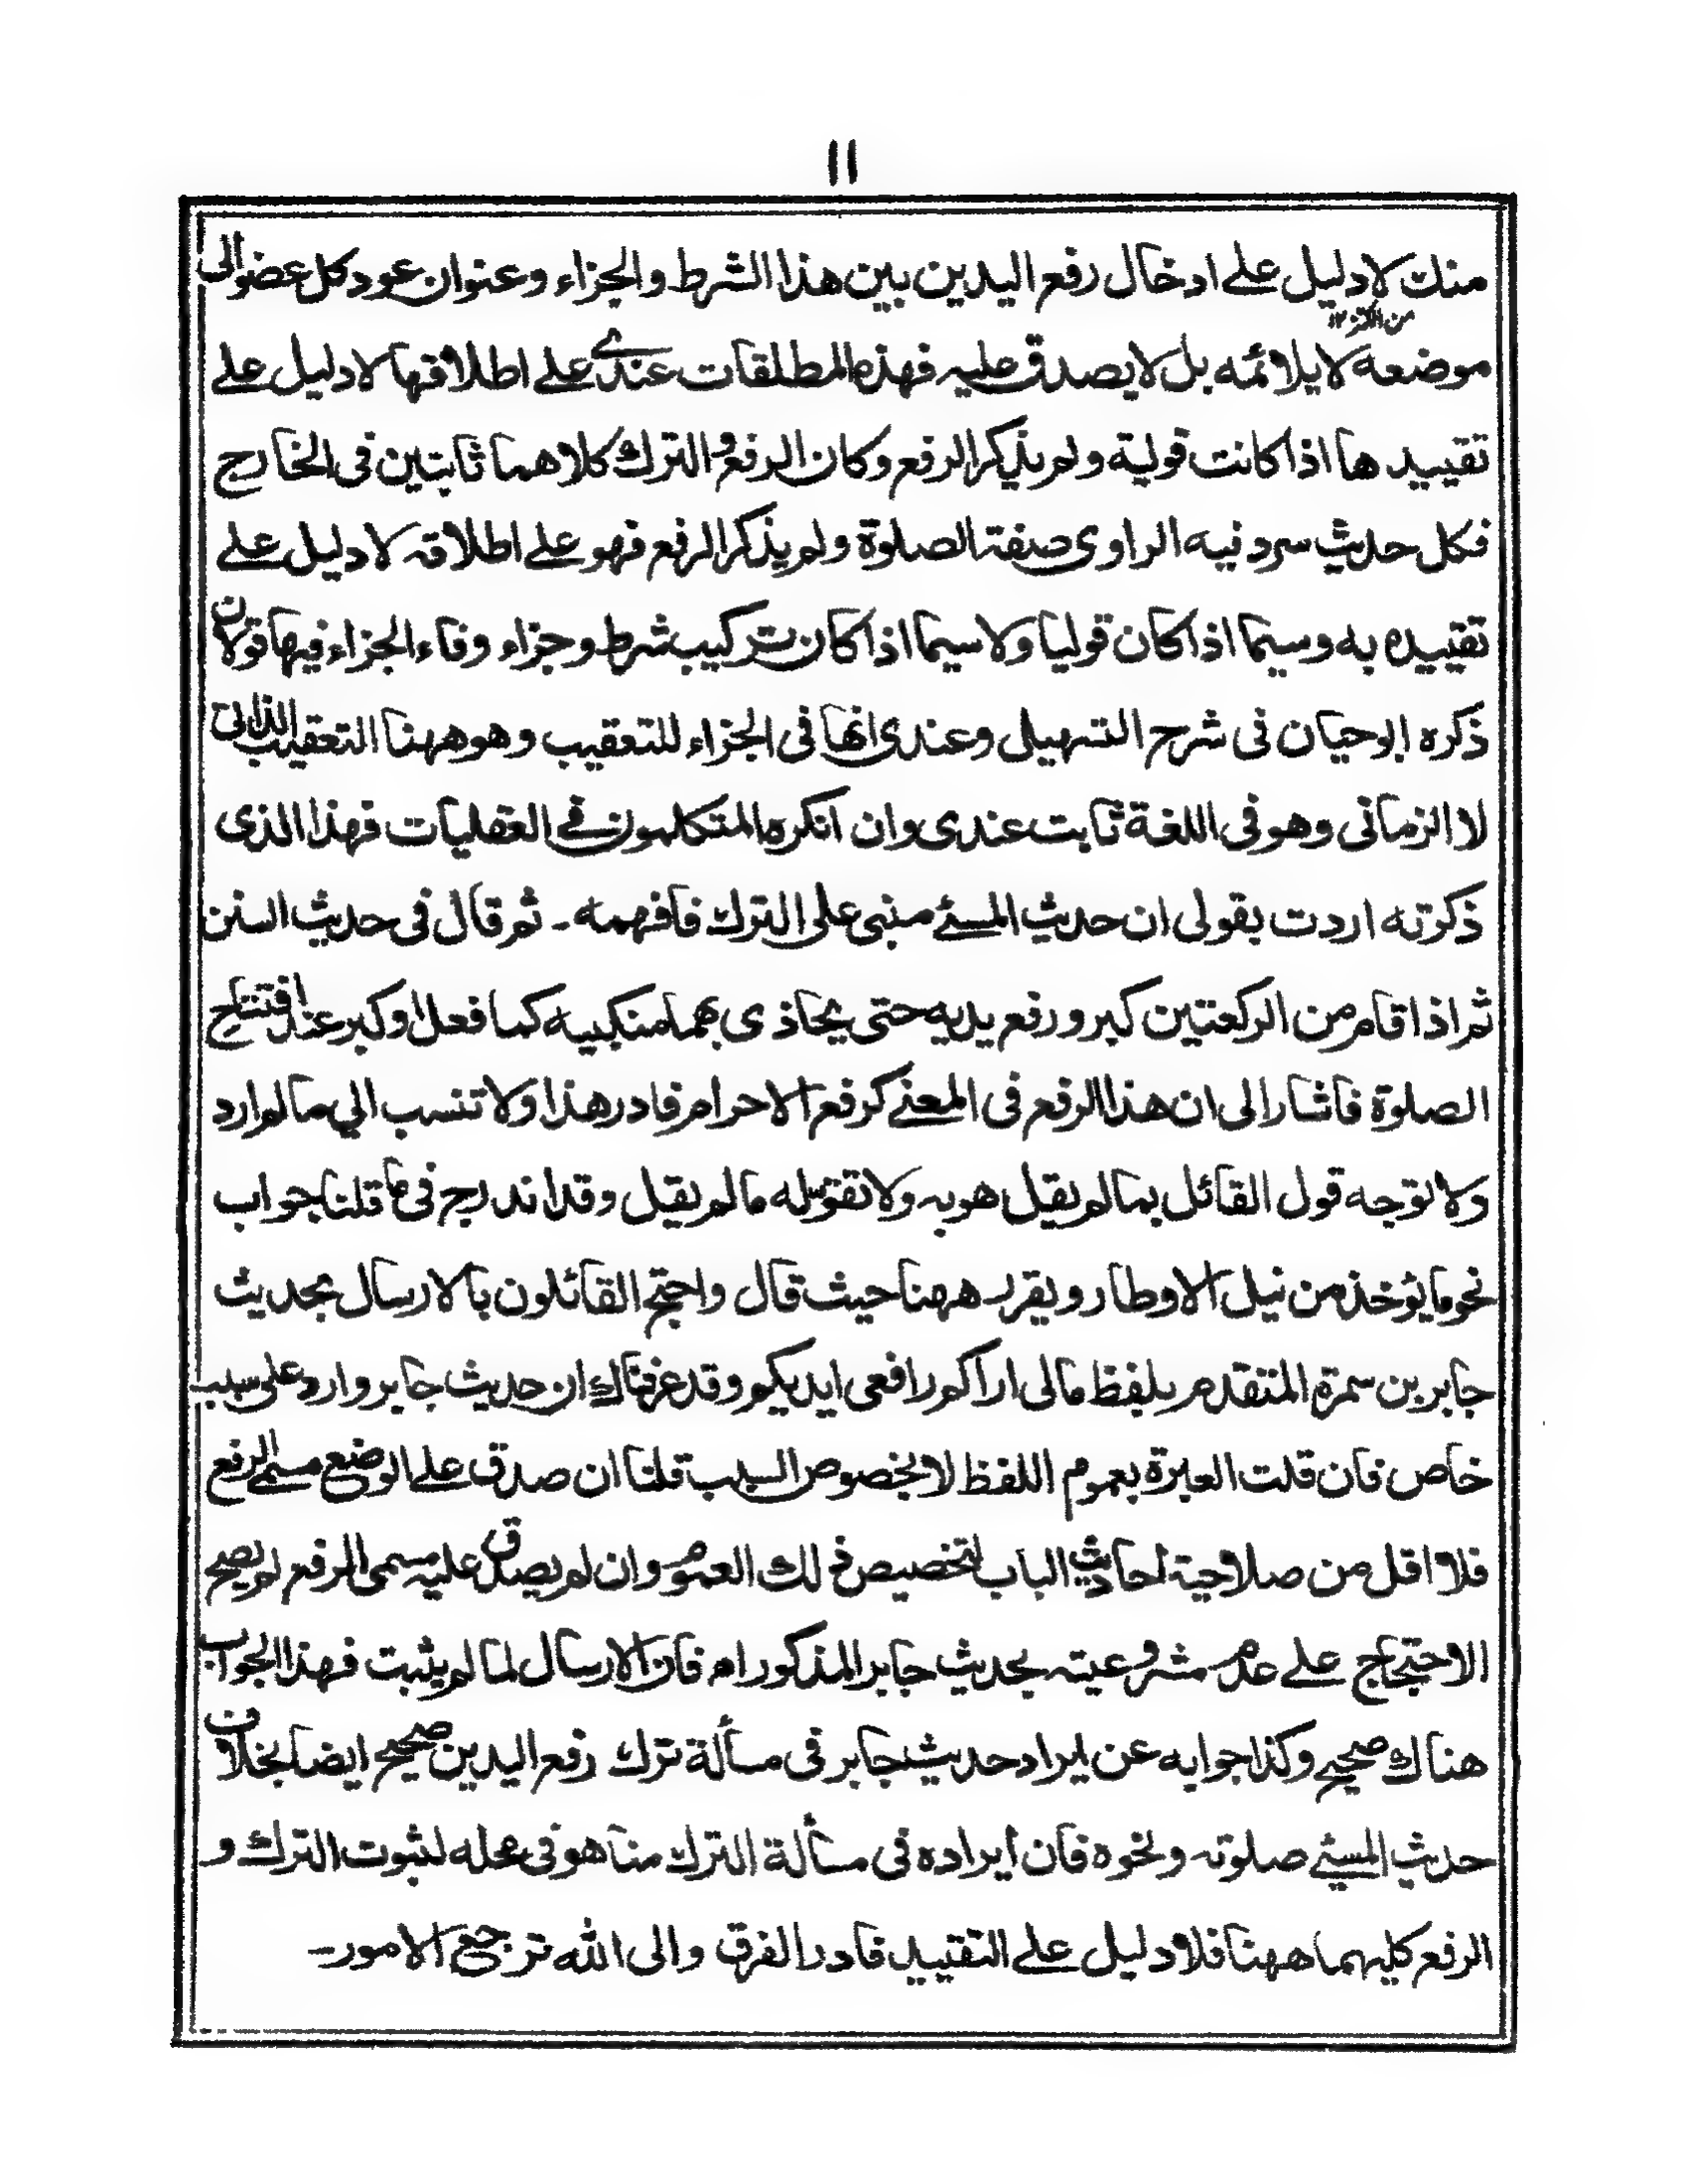 ١١
منك لا دليل على ادخال رفع اليدين بين هذا الشرط والجزاء وعنوان عود كل عضو الى
من الكنز ١٢
موضعه لا يلائمه بل لا يصدق عليه فهذه المطلقات عندى على اطلاقها لا دليل على
تقييدها اذا كانت قولية ولم يذكر الرفع وكان الرفع والترك كلاهما ثابتين فى الخارج
فكل حديث سرد فيه الراوى صفة الصلوة ولم يذكر الرفع فهو على اطلاقه لا دليل على
تقييده به وسيما اذا كان قوليا ولا سيما اذا كان تركيب شرط وجزاء وفاء الجزاء فيها قولان
ذكره ابوحيان فى شرح التسهيل وعندى انها فى الجزاء للتعقيب وهو ههنا التعقيب الذاتى
لا الزمانى وهو فى اللغة ثابت عندى وان انكره المتكلمون فى العقليات فهذا الذى
ذكرته اردت بقولى ان حديث المسئ مبنى على الترك فافهمه ـ ثم قال فى حديث السنن
ثم اذا قام من الركعتين كبر ورفع يديه حتى يحاذى بهما منكبيه كما فعل او كبر عند افتتاح
الصلوة فاشار الى ان هذا الرفع فى المعنى كرفع الاحرام فادر هذا ولا تنسب الي ما لم ارد
ولا توجه قول القائل بما لم يقل هو به ولا تقوّله ما لم يقل وقد اندرج فى ما قلنا جواب
نحو ما يؤخذ من نيل الاوطار ويقرر ههنا حيث قال واحتج القائلون بالارسال بحديث
جابر بن سمرة المتقدم بلفظ مالى اراكم رافعى ايديكم وقد عرفناك ان حديث جابر وارد على سبب
خاص فان قلت العبرة بعموم اللفظ لا بخصوص السبب قلنا ان صدق على الوضع مسمى الرفع
فلا اقل من صلاحية احاديث الباب لتخصيص ذلك العموم وان لم يصدق عليه مسمى الرفع لم يصح
الاحتجاج على عدم مشروعيته بحديث جابر المذكور ام فان الارسال لما لم يثبت فهذا الجواب
هناك صحيح وكذا جوابه عن ايراد حديث جابر فى مسألة ترك رفع اليدين صحيح ايضا بخلاف
حديث المسئ صلوته ونحوه فان أيراده فى مسألة الترك منا هو فى محله لثبوت الترك و
الرفع كليهما ههنا فلا دليل على التقييد فادر الفرق والى الله ترجع الامور ـ